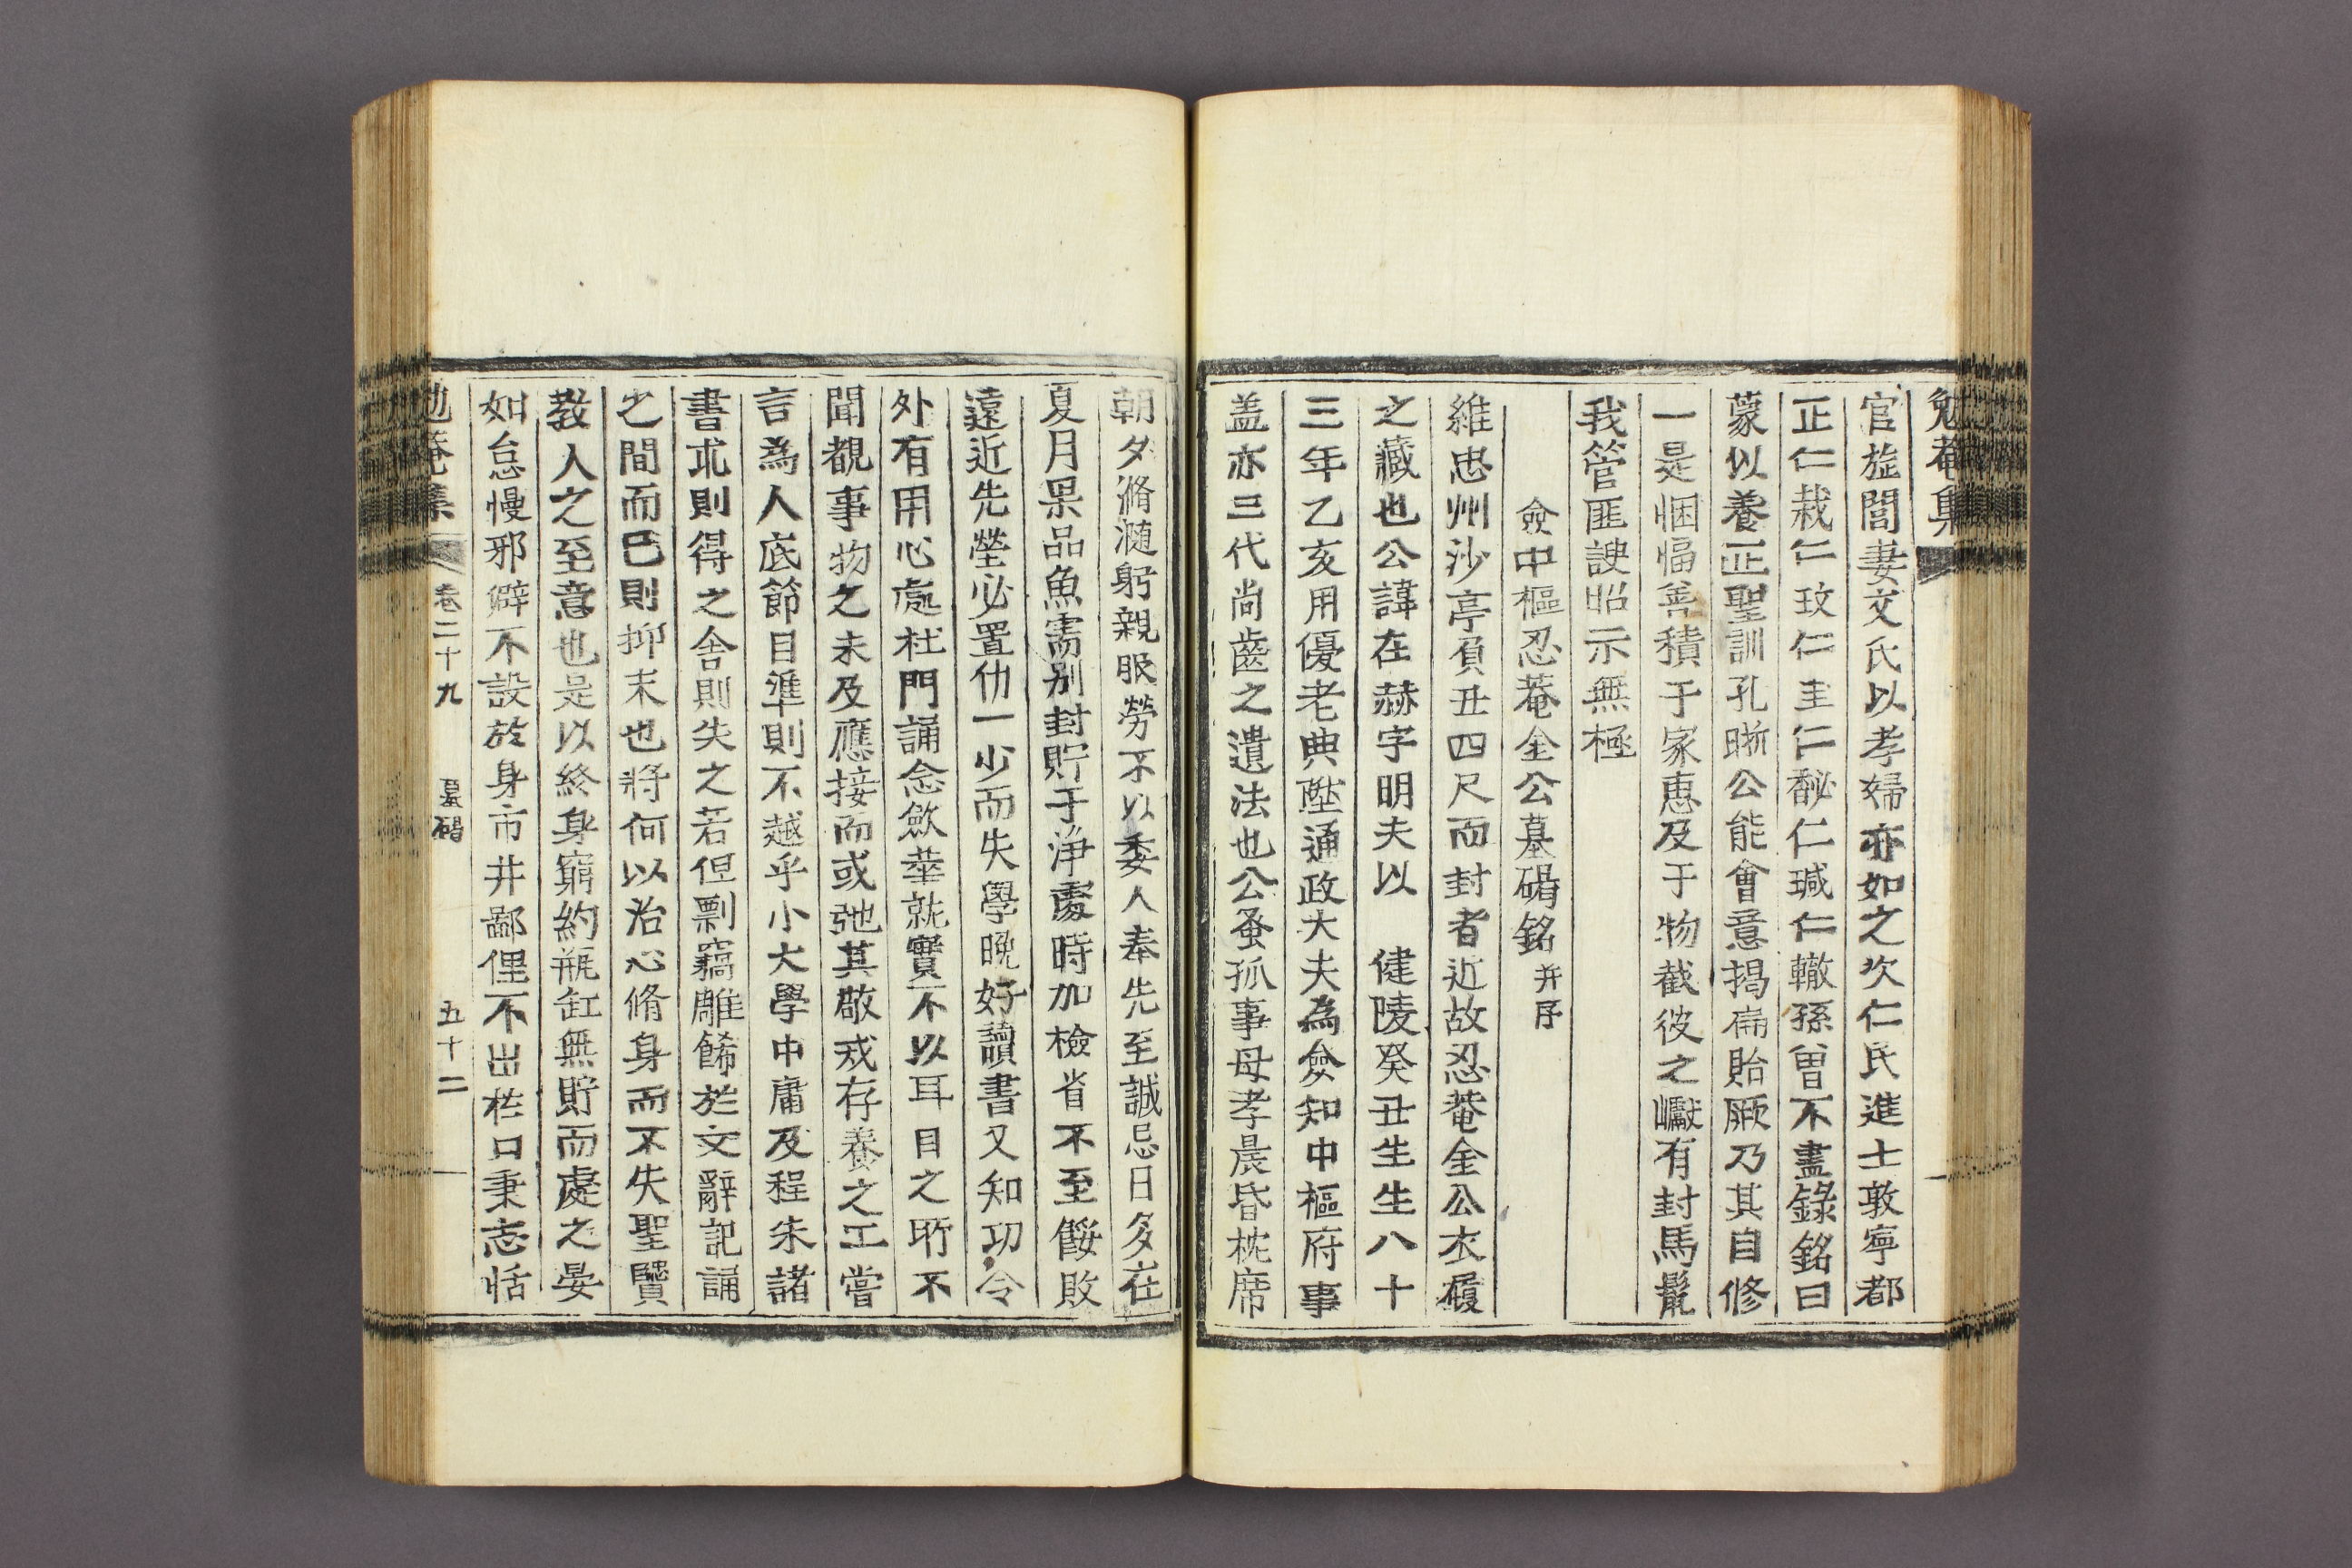 勉菴集
官旌閭妻文氏以孝婦亦如之次仁民進士敦寧都
正仁栽仁玟仁圭仁馝仁瑊仁轍孫曾不盡錄銘曰
蒙以養正聖訓孔晰公能會意揭扁貽厥乃其自修
一是悃愊善積于家惠及于物截彼之巘有封馬鬣
我管匪諛昭示無極
僉中樞忍菴金公墓碣銘 并序
維忠州沙亭負丑四尺而封者近故忍菴金公衣履
之藏也公諱在赫字明夫以 健陵癸丑生生八十
三年乙亥用優老典陞通政大夫為僉知中樞府事
盖亦三代尚齒之遺法也公蚤孤事母孝晨昏枕席
朝夕滫瀡躬親服勞不以委人奉先至誠忌日多在
夏月果品魚需別封貯于净處時加檢省不至餒敗
遠近先塋必置仂一少而失學晩好讀書又知功令
外有用心處杜門誦念斂華就實不以耳目之所不
聞覩事物之未及應接而或弛其敬戒存養之工嘗
言為人底節目準則不越乎小大學中庸及程朱諸
書求則得之舍則失之若但剽竊雕餙於文辭記誦
之間而已則抑末也將何以治心脩身而不失聖賢
教人之至意也是以終身窮約瓶缸無貯而處之晏
如怠慢邪僻不設於身市井鄙俚不出於口秉志恬
勉菴集 卷二十九 墓碣 五十二